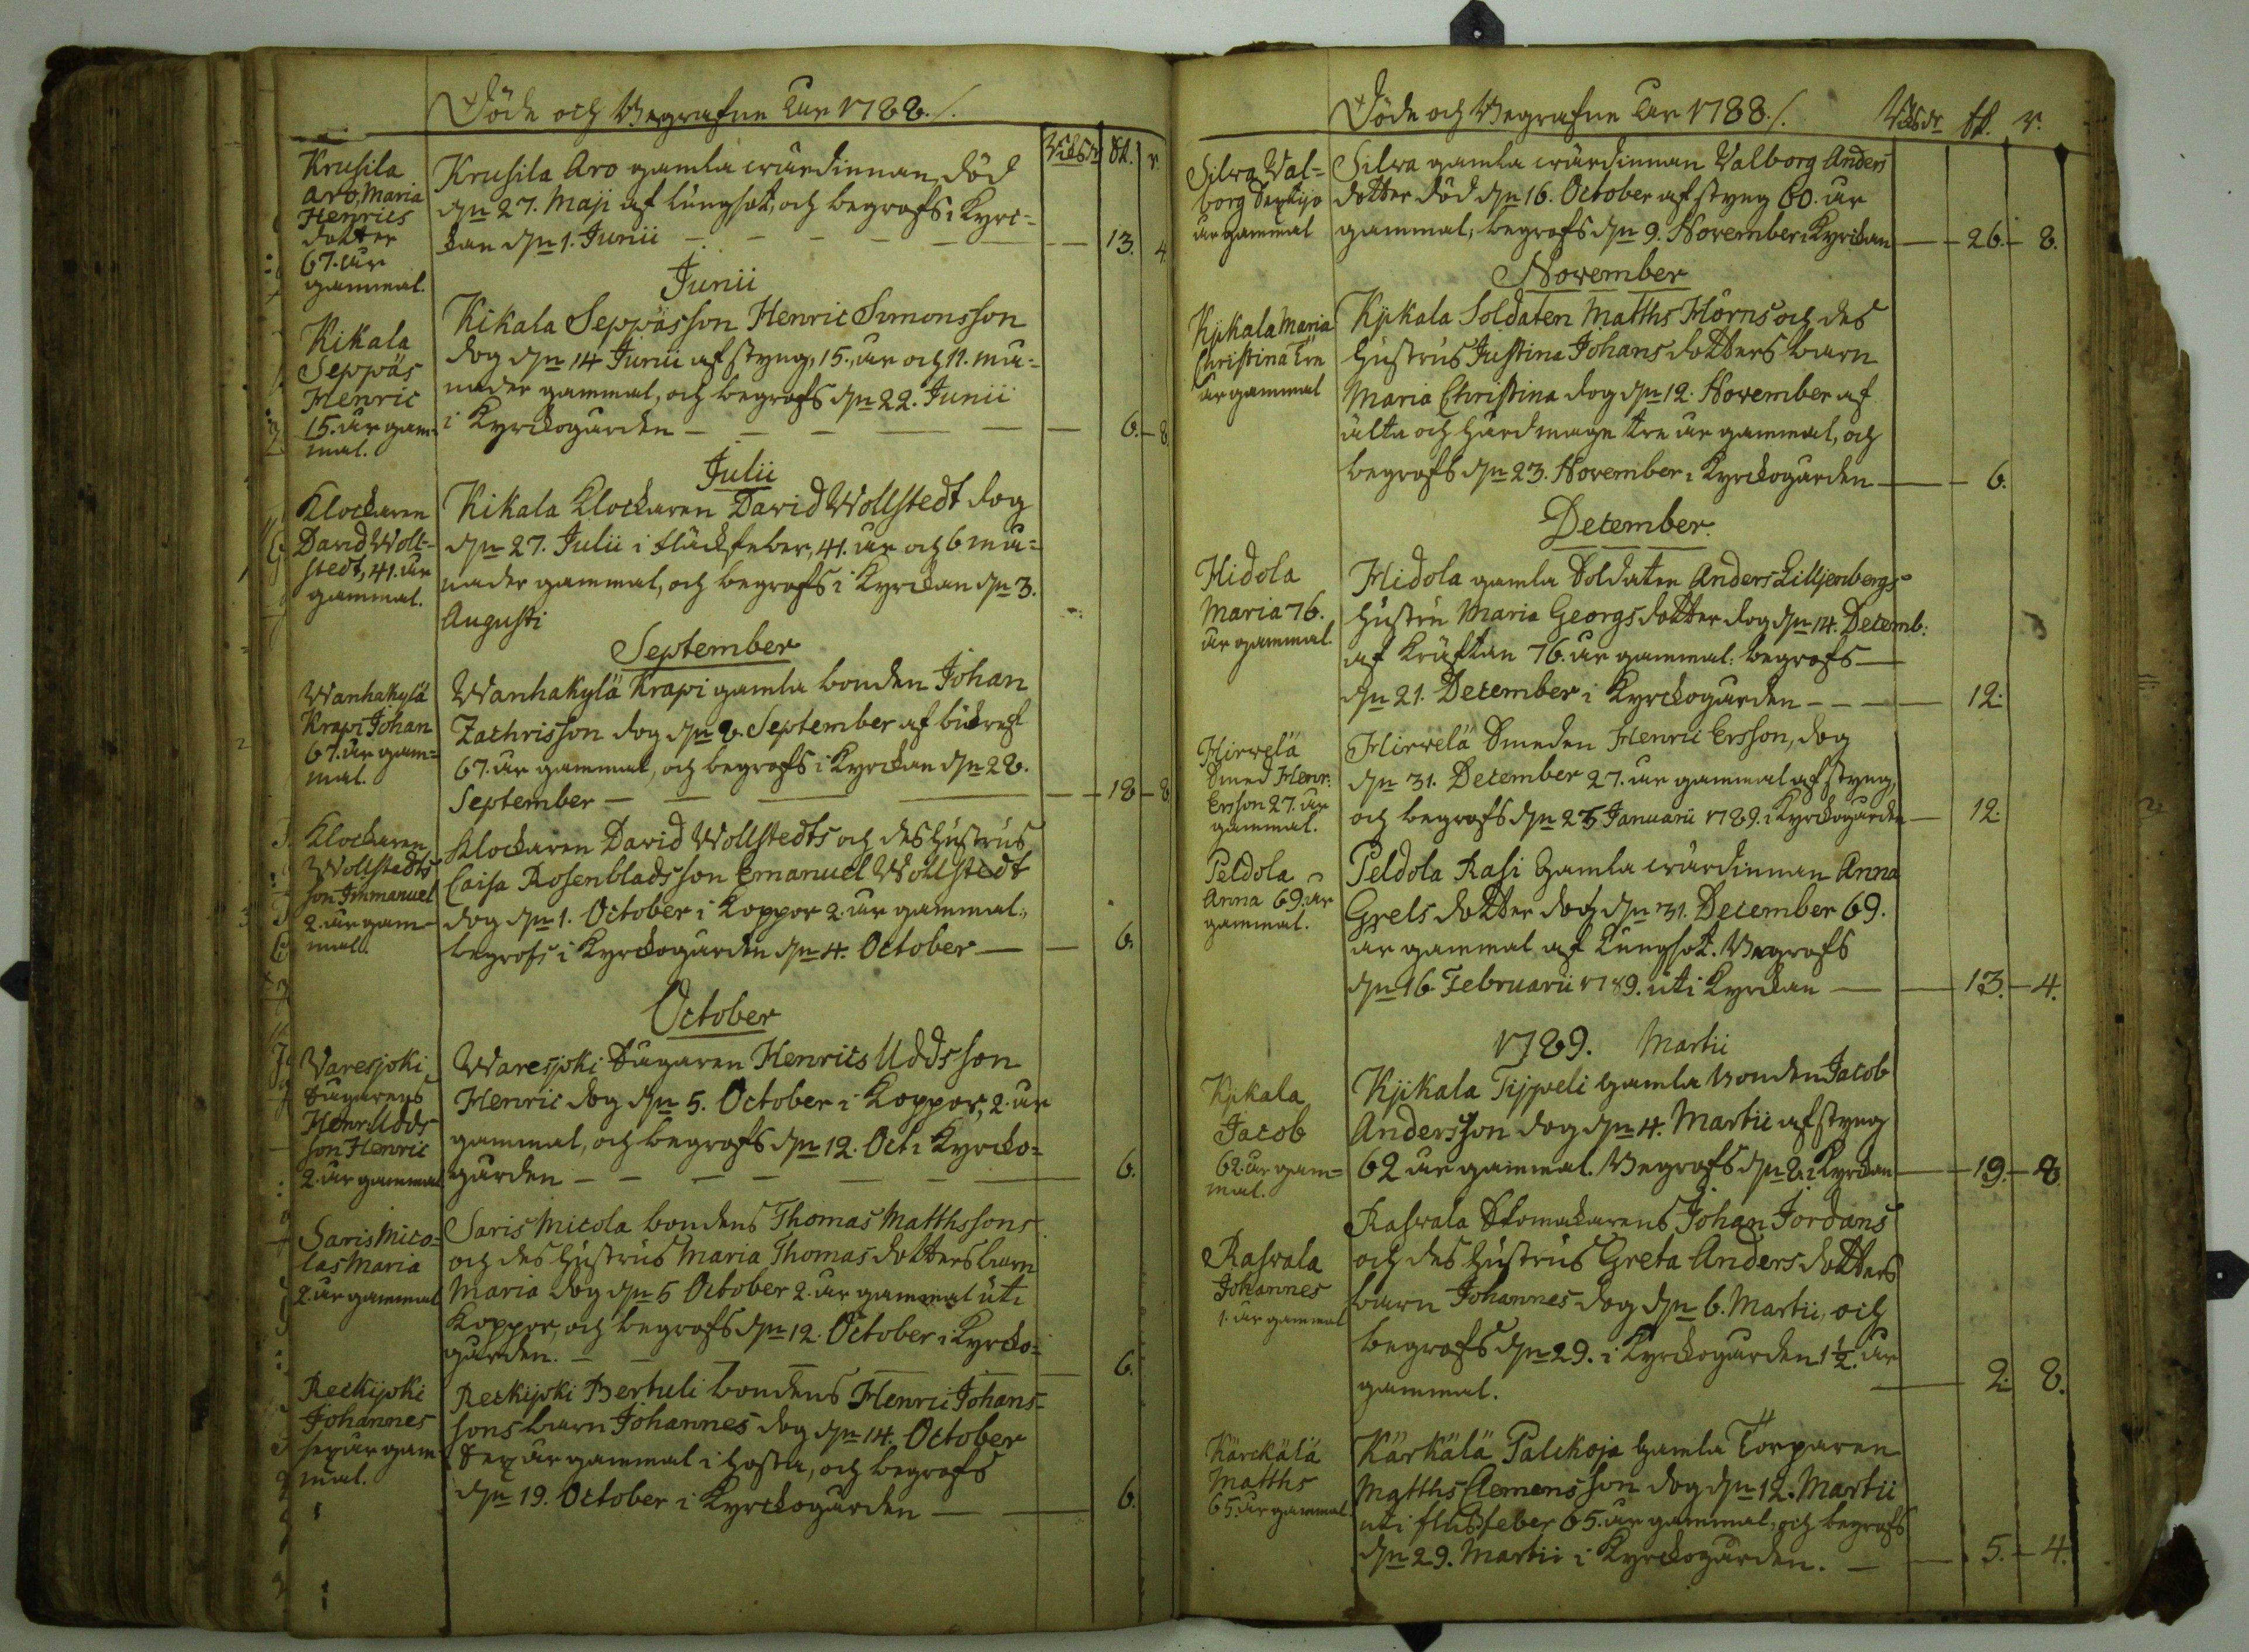 Döde och Begrafne Åår 1788./.
Riksdr sk. r.
Krusila
Aro, Maria
Henrics
dotter
67. åår
gammal.
Krusila Aro gamla wärdinnan, död
den 27. Maji af lungsot, och begrofs i Kyrc=
kan den 1. Junii — 13. 4.
Junii
Kikala
Seppäs
Henric
15. åår gam=
mal.
Kikala Seppäs son Henric Simonsson
dog den 14 Junii af styng, 15., åår och 11. må=
nader gammal, och begrofs den 22. Junii
i Kyrckogården — 6. 8
Julii
Klockaren
David Woll-
stedt, 41. åår
gammal.
Kikala Klockaren David Wollstedt dog
den 27. Julii i fläckfeber, 41. åår och 6 må=
nader gammal, och begrofs i Kyrckan den 3.
Augusti
September
Wanhakylä
Krapi Johan
67. åår gam=
mal.
Wanhakylä Krapi gamla bonden Johan
Zachrisson dog den 8. September af
67. åår gammal, och begrofs i Kyrckan den 28.
September — 18 8
Klockaren
Wollstedts
son Immanuel
2. åår gam-
mal.
Klockaren David Wollstedts och des hustrus
Caisa Rosenblads son Emanuel Wollstedt
dog den 1. October i Koppor 2. åår gammal.,
begrofs i Kyrckogården den 4. October — 6.
October
Varesjoki
Sågarens
Henr: Udds
son Henric
2. åår gammal
Waresjoki Sågaren Henrics Udds son
Henric dog den 5. October i Koppor, 2. åår
gammal, och begrofs den 12. Oct: i Kyrcko=
gården — 6.
Saris Mico=
las Maria
2. åår gammal
Saris Micola bondens Thomas Matthssons
och des hustrus Maria Thomas dotters barn
Maria dog den 5 October 2. åår gammal uti
Koppor, och begrofs den 12. October i Kyrcko=
gården. — 6.
Reckijoki
Johannes
sex åår gam
mal.
Reckijoki Bertuli bondens Henric Johans=
sons barn Johannes dog den 14. October
Sex åår gammal i hosta, och begrofs
den 19. October i Kyrckogården — 6.
Döde och Begrafne Åår 1788./.
Riksdr sk. r.
Silwa Wal=
borg Sextijo
åår gammal
Silwa gamla wärdinnan Valborg Anders
dotter död den 16. October af styng 60. åår
gammal, begrofs den 9. November i Kyrckan — 26. 8.
November
Kjikala Maria
Christina Tre
åår gammal
Kjikala Soldaten Matths Hörns och des
hustrus Justina Johans dotters barn
Maria Christina dog den 12. November af
älta och hårdmage tre åår gammal, och
begrofs den 23. November i Kyrckogården — 6.
December.
Hidola
Maria 76.
åår gammal.
Hidola gamla Soldaten Anders Lilljenbergs
hustru Maria Georgs dotter dog den 14. Decemb:
af Kräftan 76. åår gammal: begrofs —
den 21. December i Kyrckogården — 12.
Hirvelä
Smed Henr:
Ersson 27. åår
gammal.
Hirvelä Smeden Henric Ersson, dog
den 31. December 27. åår gammal af styng,
och begrofs den 25 Januarii 1789. i Kyrckogården — 12.
Peldola
Anna 69. åår
gammal.
Peldola Rasi Gamla wärdinnan Anna
Grels dotter dog den 31. December 69.
åår gammal af Lungsot. Begrofs
den 16 Februarii 1789. uti Kyrckan — 13. 4.
1789. Martii
Kjikala
Jacob
62. åår gam=
mal.
Kjikala Tijpeli gamla Bonden Jacob
Andersson dog den 4. Martii af styng
62 åår gammal. Begrofs den 8. i Kyrckan — 19. 8
Raswala
Johannes
1. åår gammal
Raswala Skomakarens Johan Jordans
och des hustrus Greta Anders dotters
barn Johannes dog den 6. Martii, och
begrofs den 29. i Kyrckogården 1½. åår
gammal. — 2. 8.
Kärckälä
Matths
65. åår gammal
Kärkälä Palckoja gamla Torparen
Matths Clemens son dog den 12. Martii
uti flussfeber 65. åår gammal, och begrofs
den 29. Martii i Kyrckogården. — 5. 4.